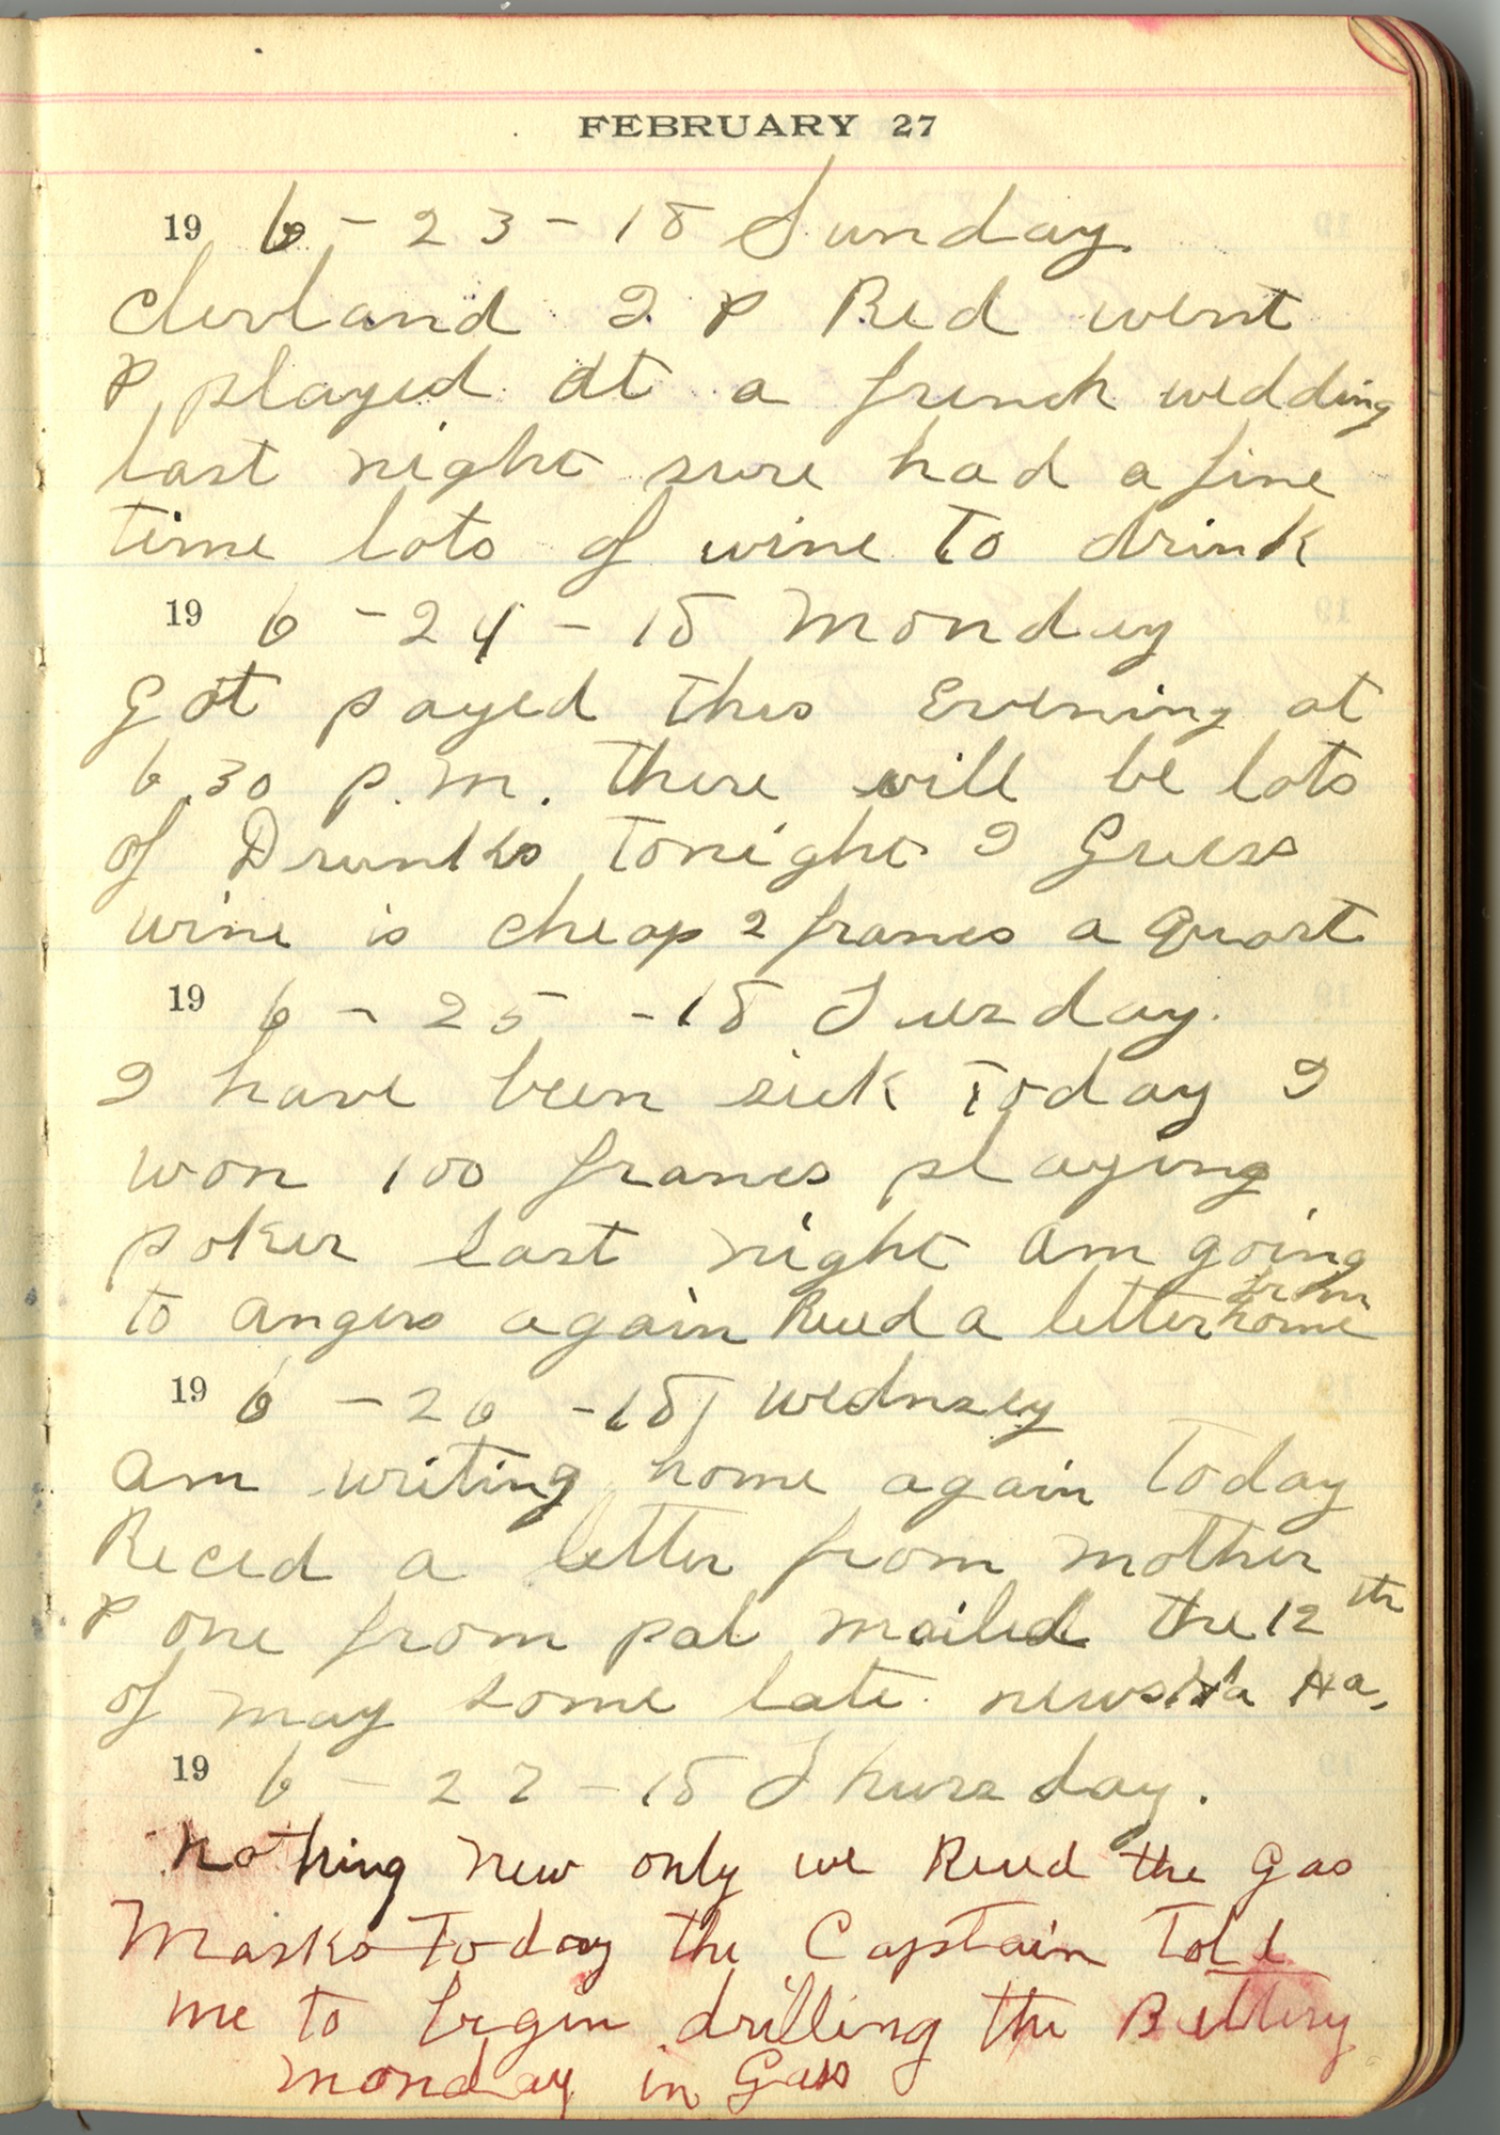 FEBRUARY 27
19 6-23-18 Sunday
Clevland I & Red went
& played at a french wedding
last night sure had a fine
time lots of wine to drink
19 6-24-18 Monday
Got payed this Evening at
6.30 P.M. there will be lots
of Drunks tonight I Guess
wine is cheap 2 francs a Quart
19 6-25-18 Tuesday.
I have been sick Today I
won 100 francs playing
poker last night am going
from
to angers again Recd a letter home
19 6-26-18 wednsey
am writing home again Today
Reced a letter from mother
& one from pal mailed the 12th
of may some late news Ha Ha,
19 6-27-18 Thursday.
nothing new only we Recd the Gas
Masks Today the Captain Told
me to begin drilling the Battery
monday in Gas